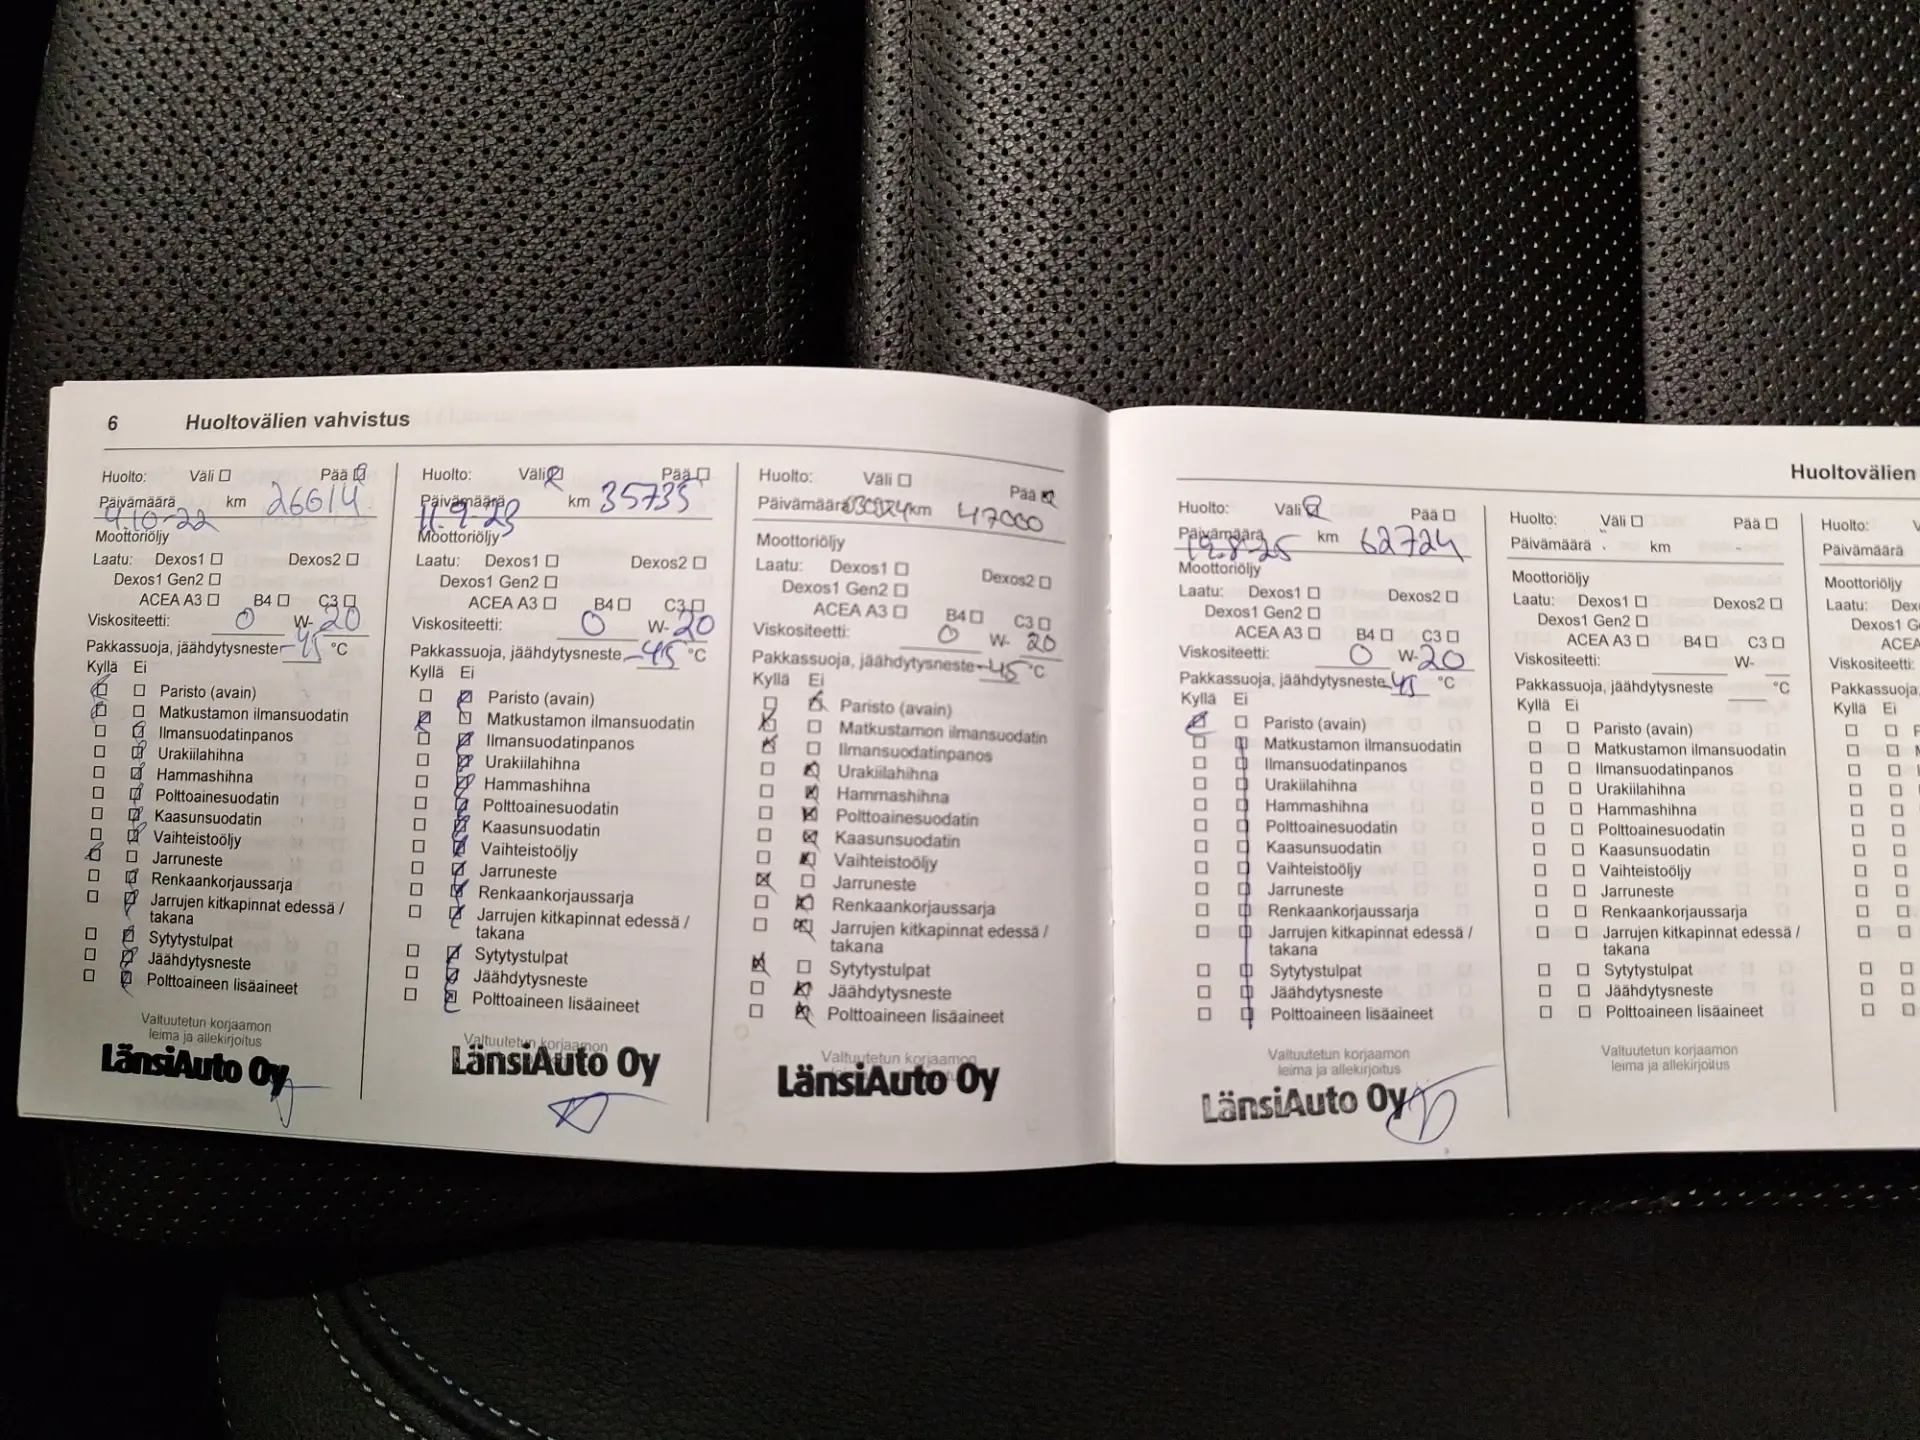 6 Huoltovälien vahvistus
Huolto: Väli Pää
Päivämäärä km 26614
4.10-22
Moottoriöljy
Laatu: Dexos1 Dexos2
Dexos1 Gen2
ACEA A3 B4 C3
Viskositeetti: 0 W-20
Pakkassuoja, jäähdytysneste -45 °C
Kyllä Ei
Paristo (avain)
Matkustamon ilmansuodatin
Ilmansuodatinpanos
Urakiilahihna
Hammashihna
Polttoainesuodatin
Kaasunsuodatin
Vaihteistoöljy
Jarruneste
Renkaankorjaussarja
Jarrujen kitkapinnat edessä /
takana
Sytytystulpat
Jäähdytysneste
Polttoaineen lisäaineet
Valtuutetun korjaamon
leima ja allekirjoitus
LänsiAuto Oy
Huolto: Väli Pää
Päivämäärä km 35735
11.9.23
Moottoriöljy
Laatu: Dexos1 Dexos2
Dexos1 Gen2
ACEA A3 B4 C3
Viskositeetti: 0 W-20
Pakkassuoja, jäähdytysneste -45 °C
Kyllä Ei
Paristo (avain)
Matkustamon ilmansuodatin
Ilmansuodatinpanos
Urakiilahihna
Hammashihna
Polttoainesuodatin
Kaasunsuodatin
Vaihteistoöljy
Jarruneste
Renkaankorjaussarja
Jarrujen kitkapinnat edessä /
takana
Sytytystulpat
Jäähdytysneste
Polttoaineen lisäaineet
Valtuutetun korjaamon
LänsiAuto Oy
Huolto: Väli Pää
Päivämäärä km 47000
Moottoriöljy
Laatu: Dexos1 Dexos2
Dexos1 Gen2
ACEA A3 B4 C3
Viskositeetti: 0 W- 20
Pakkassuoja, jäähdytysneste -45 °C
Kyllä Ei
Paristo (avain)
Matkustamon ilmansuodatin
Ilmansuodatinpanos
Urakiilahihna
Hammashihna
Polttoainesuodatin
Kaasunsuodatin
Vaihteistoöljy
Jarruneste
Renkaankorjaussarja
Jarrujen kitkapinnat edessä /
takana
Sytytystulpat
Jäähdytysneste
Polttoaineen lisäaineet
Valtuutetun korjaamon
LänsiAuto Oy
Huoltovälien
Huolto: Väli Pää
Päivämäärä km 62724
19.8.25
Moottoriöljy
Laatu: Dexos1 Dexos2
Dexos1 Gen2
ACEA A3 B4 C3
Viskositeetti: 0 W-20
Pakkassuoja, jäähdytysneste -45 °C
Kyllä Ei
Paristo (avain)
Matkustamon ilmansuodatin
Ilmansuodatinpanos
Urakiilahihna
Hammashihna
Polttoainesuodatin
Kaasunsuodatin
Vaihteistoöljy
Jarruneste
Renkaankorjaussarja
Jarrujen kitkapinnat edessä /
takana
Sytytystulpat
Jäähdytysneste
Polttoaineen lisäaineet
Valtuutetun korjaamon
leima ja allekirjoitus
LänsiAuto Oy
Huolto: Väli Pää
Päivämäärä km
Moottoriöljy
Laatu: Dexos1 Dexos2
Dexos1 Gen2
ACEA A3 B4 C3
Viskositeetti: W-
Pakkassuoja, jäähdytysneste °C
Kyllä Ei
Paristo (avain)
Matkustamon ilmansuodatin
Ilmansuodatinpanos
Urakiilahihna
Hammashihna
Polttoainesuodatin
Kaasunsuodatin
Vaihteistoöljy
Jarruneste
Renkaankorjaussarja
Jarrujen kitkapinnat edessä /
takana
Sytytystulpat
Jäähdytysneste
Polttoaineen lisäaineet
Valtuutetun korjaamon
leima ja allekirjoitus
Huolto:
Päivämäärä
Moottoriöljy
Laatu:
ACEA
Viskositeetti:
Pakkassuoja,
Kyllä Ei